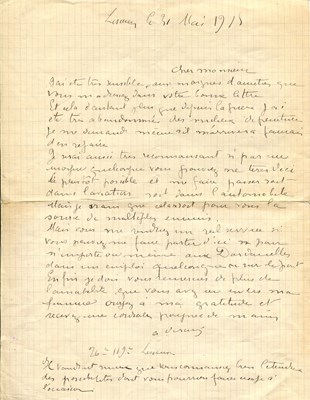 Lisieux le 31 Mai 1915
Cher monsieur
J'ai été très sensible aux marques d'amitié que
vous me donnez dans votre bonne lettre
Et cela d'autant plus que depuis la guerre j'ai
été très abandonné des milieux de peinture
Je me demande même s'il m'arrivera jamais
d'en refaire
Je vous serais très reconnaissant si par un
moyen quelconque vous pouviez me tirer d'ici
le plus tôt possible et me faire passer soit
dans l'aviation soit dans l'automobile
Mais je crains que cela soit pour vous la
source de multiples ennuis
Mais vous me rendrez un réel service si
vous pouvez me faire partir d'ici
n'importe où même aux Dardanelles
dans un emploi quelconque ou sur le front
Enfin je vous remercie de plus de
l'amabilité que vous avez eu envers ma
femme croyez à ma gratitude et
recevez une cordiale poignée de mains
a Derain
Lisieux
Il vaudrait mieux que vous connaissiez bien l'étendue
des possibilités dont vous pourriez faire usage à
l'occasion